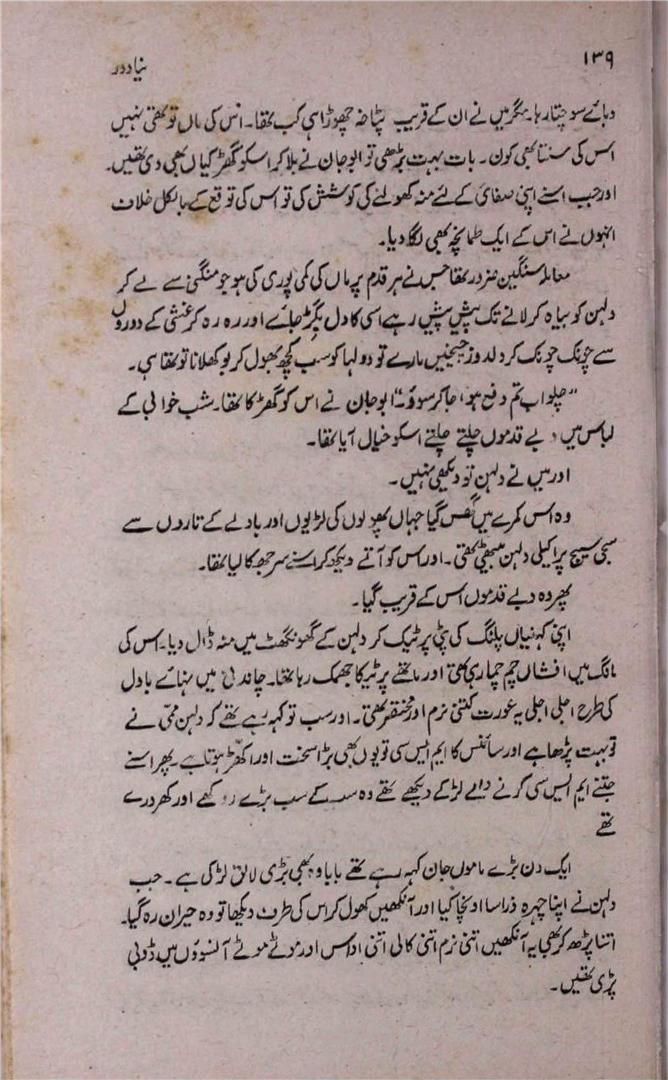 ۱۳۹
نیا دور
دبائے سوچتا رہا۔ مگر میں نے ان کے قریب پٹاخہ چھوڑا ہی کب تھا۔ اس کی ماں تو تھی نہیں
اس کی سنتا بھی کون۔ بات بہت بڑھی تو ابو جان نے بلا کر اسکو گھڑکیاں بھی دی تھیں۔
اور جب اسنے اپنی صفائی کے لئے منہ کھولنے کی کوشش کی تو اس کی توقع کے بالکل خلاف
انہوں نے اس کے ایک طمانچہ بھی لگا دیا۔
معاملہ سنگین ضرور تھا جس نے ہر قدم پر ماں کی کمی پوری کی ہو جو منگنی سے لے کر
دلہن کو بیاہ کر لانے تک پیش پیش رہے اسی کا دل بگڑ جائے اور رہ رہ کر غشی کے دوروں
سے چونک چونک کر دلدوز چیخیں مارے تو دولہا کو سب کچھ بھول کر بوکھلانا تو تھا ہی۔
"چلو اب تم دفع ہو، جا کر سوؤ۔" ابو جان نے اس کو گھڑکا تھا۔ شب خوابی کے
لباس میں دبے قدموں چلتے چلتے اسکو خیال آیا تھا۔
اور میں نے دلہن تو دیکھی نہیں۔
وہ اس کمرے میں گھس گیا جہاں پھولوں کی لڑیوں اور بادلے کے تاروں سے
سجی سیج پر اکیلی دلہن بیٹھی تھی۔ اور اس کو آتے دیکھ کر اسنے سر جھکا لیا تھا۔
پھر وہ دبے قدموں اس کے قریب گیا۔
اپنی کہنیاں پلنگ کی پٹی پر ٹیک کر دلہن کے گھونگھٹ میں منہ ڈال دیا۔ اس کی
مانگ میں افشاں چم چما رہی تھی اور ماتھے پر ٹیکا جھمک رہا تھا۔ چاندنی میں نہائے بادل
کی طرح اجلی اجلی یہ عورت کتنی نرم اور مختصر تھی۔ اور سب تو کہہ رہے تھے کہ دلہن ممی نے
تو بہت پڑھا ہے اور سائنس کا ایم ایس سی تو یوں بھی بڑا سخت اور اکھڑ ہوتا ہے۔ پھر اسنے
جتنے ایم ایس سی کرنے والے لڑکے دیکھے تھے وہ سب کے سب بڑے روکھے اور کھردرے
تھے
ایک دن بڑے ماموں جان کہہ رہے تھے بابا وہ بھی بڑی لائق لڑکی ہے۔ جب
دلہن نے اپنا چہرہ ذرا سا اونچا کیا اور آنکھیں کھول کر اس کی طرف دیکھا تو وہ حیران رہ گیا۔
اتنا پڑھ کر بھی یہ آنکھیں اتنی نرم اتنی کالی اتنی اداس اور موٹے موٹے آنسوؤں میں ڈوبی
پڑی تھیں۔